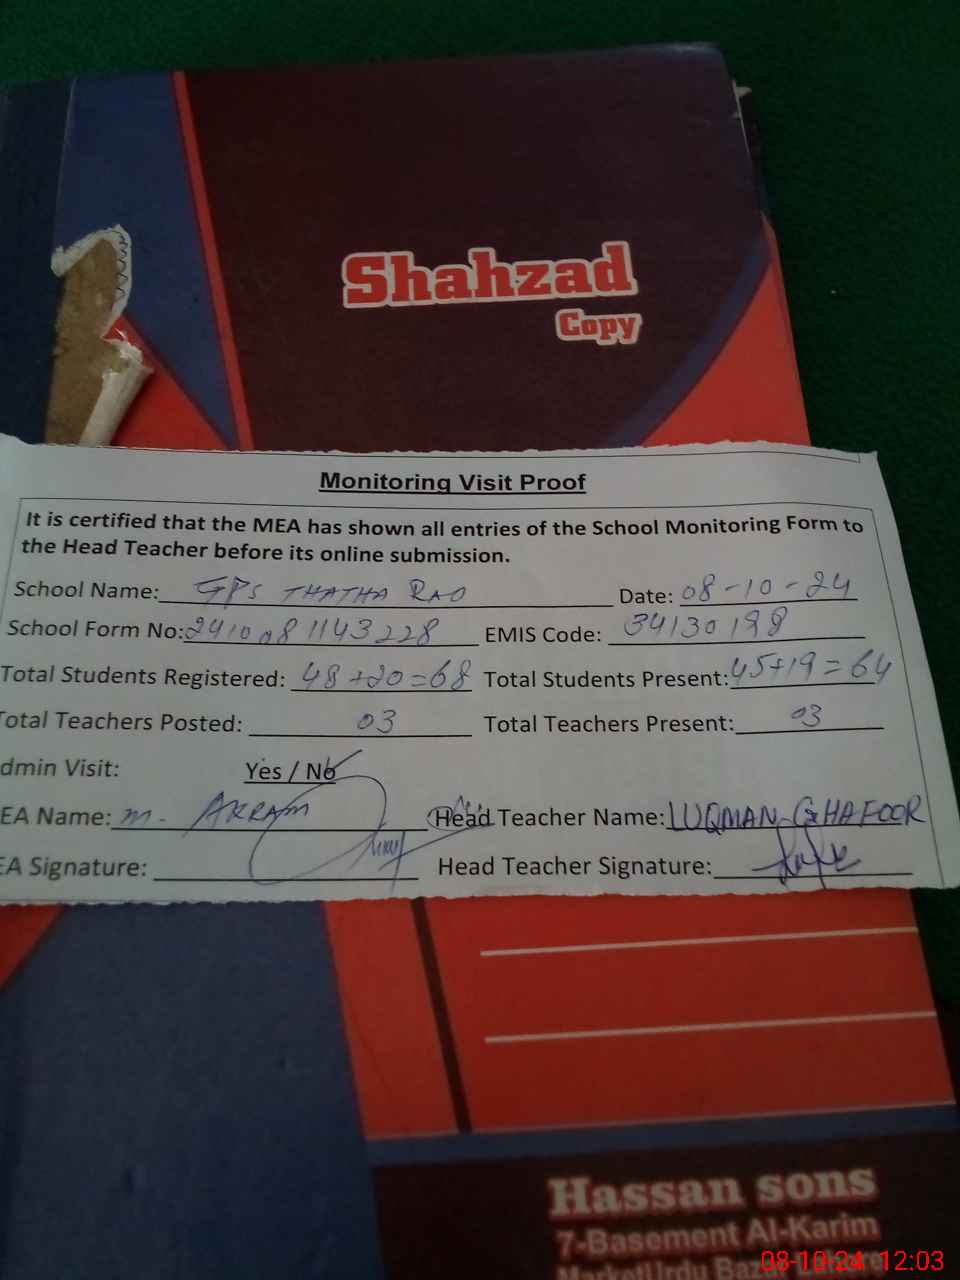 Shahzad
Copy
Monitoring Visit Proof
It is certified that the MEA has shown all entries of the School Monitoring Form to
the Head Teacher before its online submission.
School Name: GPS THATHA RAO Date: 08-10-24
School Form No: 2410081143228 EMIS Code: 34130198
Total Students Registered: 48+20=68 Total Students Present: 45+19=64
Total Teachers Posted: 03 Total Teachers Present: 03
dmin Visit: Yes / No
EA Name: M. AKRAM Head Teacher Name: LUQMAN GHAFOOR
EA Signature: Head Teacher Signature:
Hassan sons
7-Basement Al-Karim
Market Urdu Bazar Lahore
08-10-24 12:03